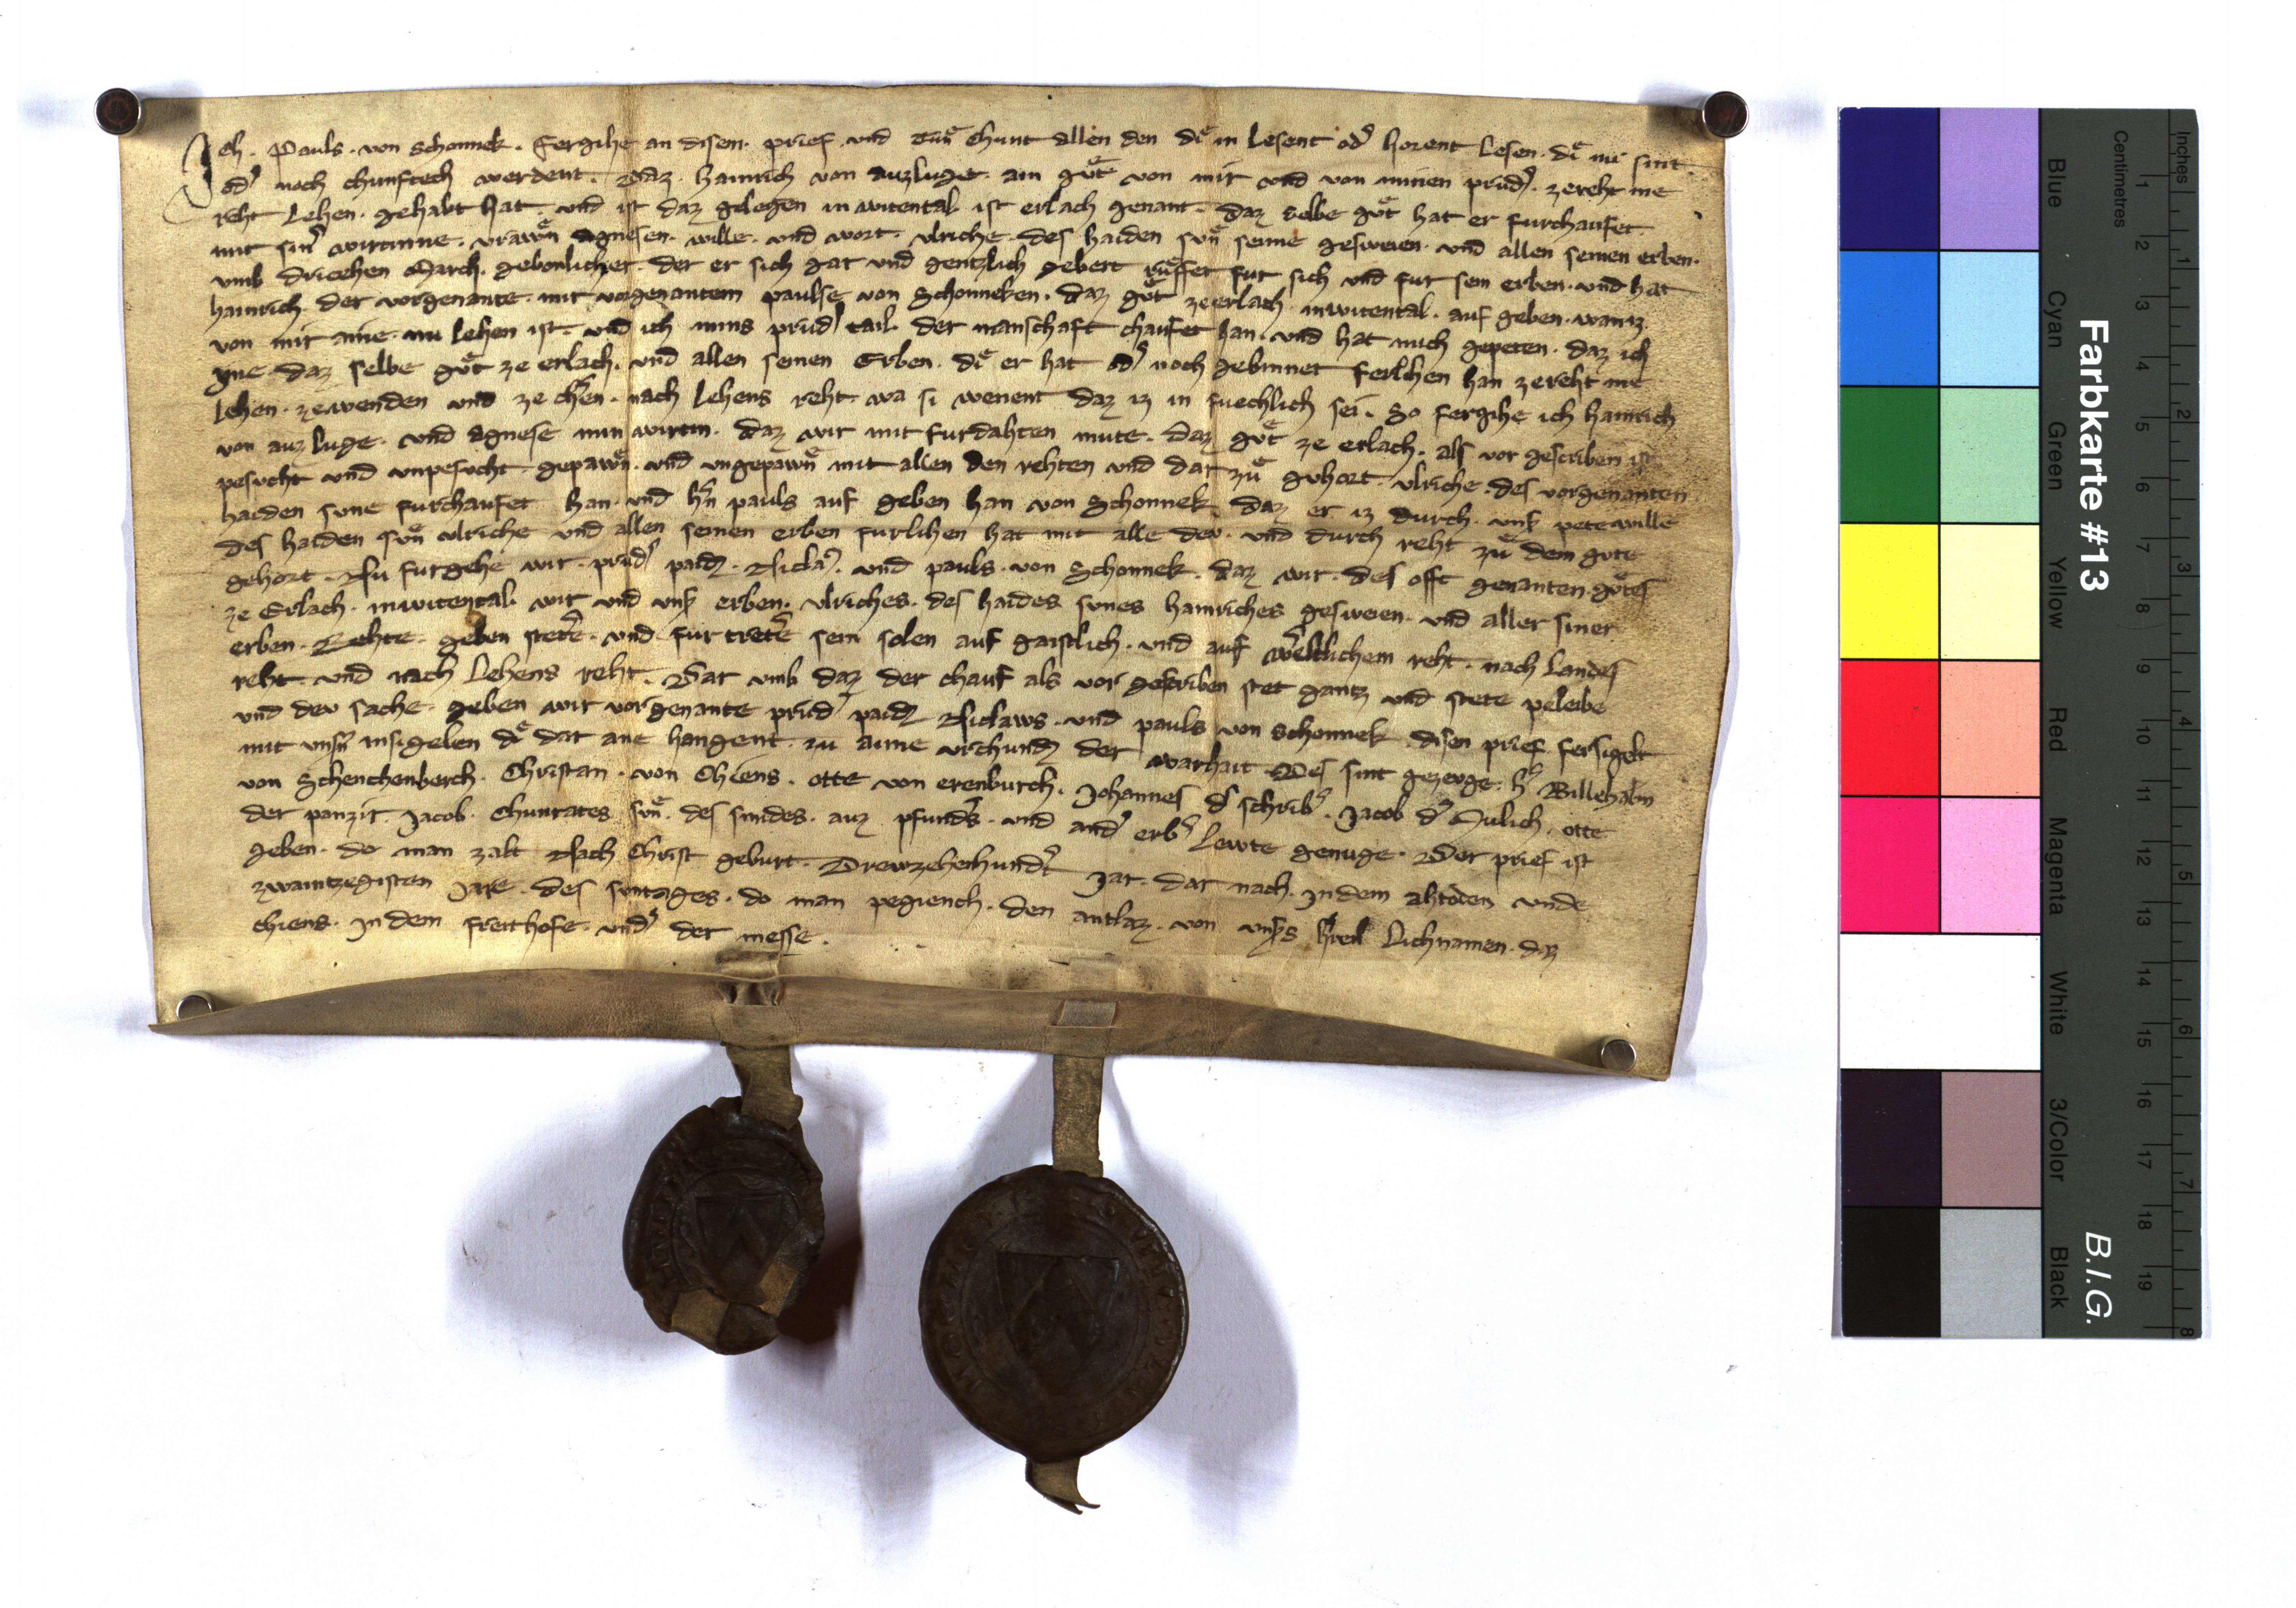 Ich . Pauls . von Schonnek . Fergihe an disem . prief . vnd tuͤn chunt allen den diͤ in Lesent od᾽ horent Lesen . diͤ nu sint
od᾽ noch chunftech werdent . Daz . Hainrich von auzluge . ain guͤt von mir vnd von minen prud᾽ . ze reht me
reht Lehen . gehabt hat . vnd ist daz gelegen in witental . ist erlach genant . daz selbe guͤt hat er furchaufet .
mit sin᾽ wirtinne . vrawͤn agnesen . wille . vnd wort . vlriche . des haiden suͤn seime gesweien . vnd allen seinen erben .
vmb driczehen March . gebonlicher . der er sich gar vnd gentzlich gebert ruͤffet fur sich vnd fur sein erben . vnd hat
hainrich . der vorgenante . mir vorgenantem paulse von Schonneken . daz guͤt ze erlach . in witental . auf geben . wan iz
von mir aine . nu lehen ist . vnd ich mins prud᾽ tail . der manschaft chaufet han . vnd hat mich gepeten . daz ich
yme . daz selbe guͤt ze erlach . vnd allen seinen Erben . diͤ er hat od᾽ noch gebinnet ferlihen han ze reht me
Lehen . ze wenden vnd ze chern . nach Lehens reht . wa si wenent daz iz in fuechlich sei . So fergihe ich hainrich
von auz luge . vnd agnese min wirtin . daz wir mit furdahten mute . daz guͤt ze erlach . als vor gescriben ist
pesucht vnd vnpesucht . gepawͤn . vnd vngepawͤn mit allen den rehten vnd dar zuͤ gehort . vlriche . des vorgenanten
haiden sune furchaufet han . vnd h᾽n pauls auf geben han von Schonnek . daz er iz durch . vns᾽ pete wille
des haiden suͤn vlriche vnd allen seinen erben furlihen hat mit alle dev . vnd durch reht zuͤ dem gute
gehort . Nu furgehe wir . prud᾽ paid . Nicla᾽ . vnd pauls . von Schonnek . daz wir . des offt genanten . guͤtes
ze Erlach . in witental . wir vnd vns᾽ erben . vlriches . des haides sunes hainriches gesweien . vnd aller siner
erben . Rehte . geben stete᾽ . vnd . fur trete᾽ sein solen auf gaistlich . vnd auf weltlichem reht . nach Landes
reht . vnd nach Lehens reht . Dar vmb daz der chauf als vor gescriben stet gantz vnd stete peleibe
vnd dev sache . geben wir vorgenante prud᾽ paid Niclaws . vnd pauls von schonnek . disen prief fersigelt
mit vnsn᾽ insigelen diͤ dar ane hangent . zu aime vrchund der warhait . Des sint gezeuge . h᾽ Willehalm
von Schenchenberch . Christan . von Chiens . otte von erenburch . Johannes d᾽ schrib᾽ . Jacob d᾽ Mulich . otte
der panzir . Jacob . Chunrates suͤn . des smides . auz pfunds᾽ . vnd and᾽ erb᾽ Lewte genuge . Der prief ist
geben . do man zalt Nach Christ geburt . Drewzehenhund᾽t Jar . dar nach . In dem ahtoden vnde
zwaintzegisten Jare . des suntages . do man pegiench . den antlaz . von vns᾽s h᾽ren Lichnamen . daz
chiens . In dem freithofe . vnd᾽ der messe .
Farbkarte #13
B.I.G.
Centimetres
Inches
1 2 3 4 5 6 7 8 9 10 11 12 13 14 15 16 17 18 19
1 2 3 4 5 6 7 8
Blue
Cyan
Green
Yellow
Red
Magenta
White
3/Color
Black